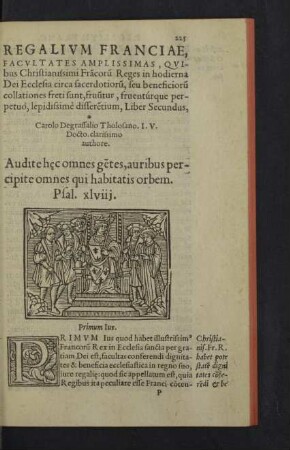 225
REGALIVM FRANCIAE,
FACVLTATES AMPLISSIMAS, QVI
bus Christianissimi Frācorū Reges in hodierna
Dei Ecclesia circa sacerdotiorū, seu beneficiorū
collationes freti sunt, fruūtur, fruentúrque per
petuó, lepidissimè disserētium, Liber Secundus,
a
Carolo Degrassalio Tholosano. I. V.
Docto. clarissimo
authore.
Audite hęc omnes gētes, auribus per-
cipite omnes qui habitatis orbem.
Psal. xlviij.
Primum Ius.
PRIMVM Ius quod habet illustrissim⁹
Francorū Rex in Ecclesia sancta per gra
tiam Dei est, facultas conferendi dignita
tes & beneficia ecclesiastica in regno suo,
iure regalię: quod sic appellatum est, quia
Regibus ita peculiare esse Franci cōten-
P
Christia-
nis. Fr. R.
habet pote
statē digni
tates cōfe-
rēdi & be